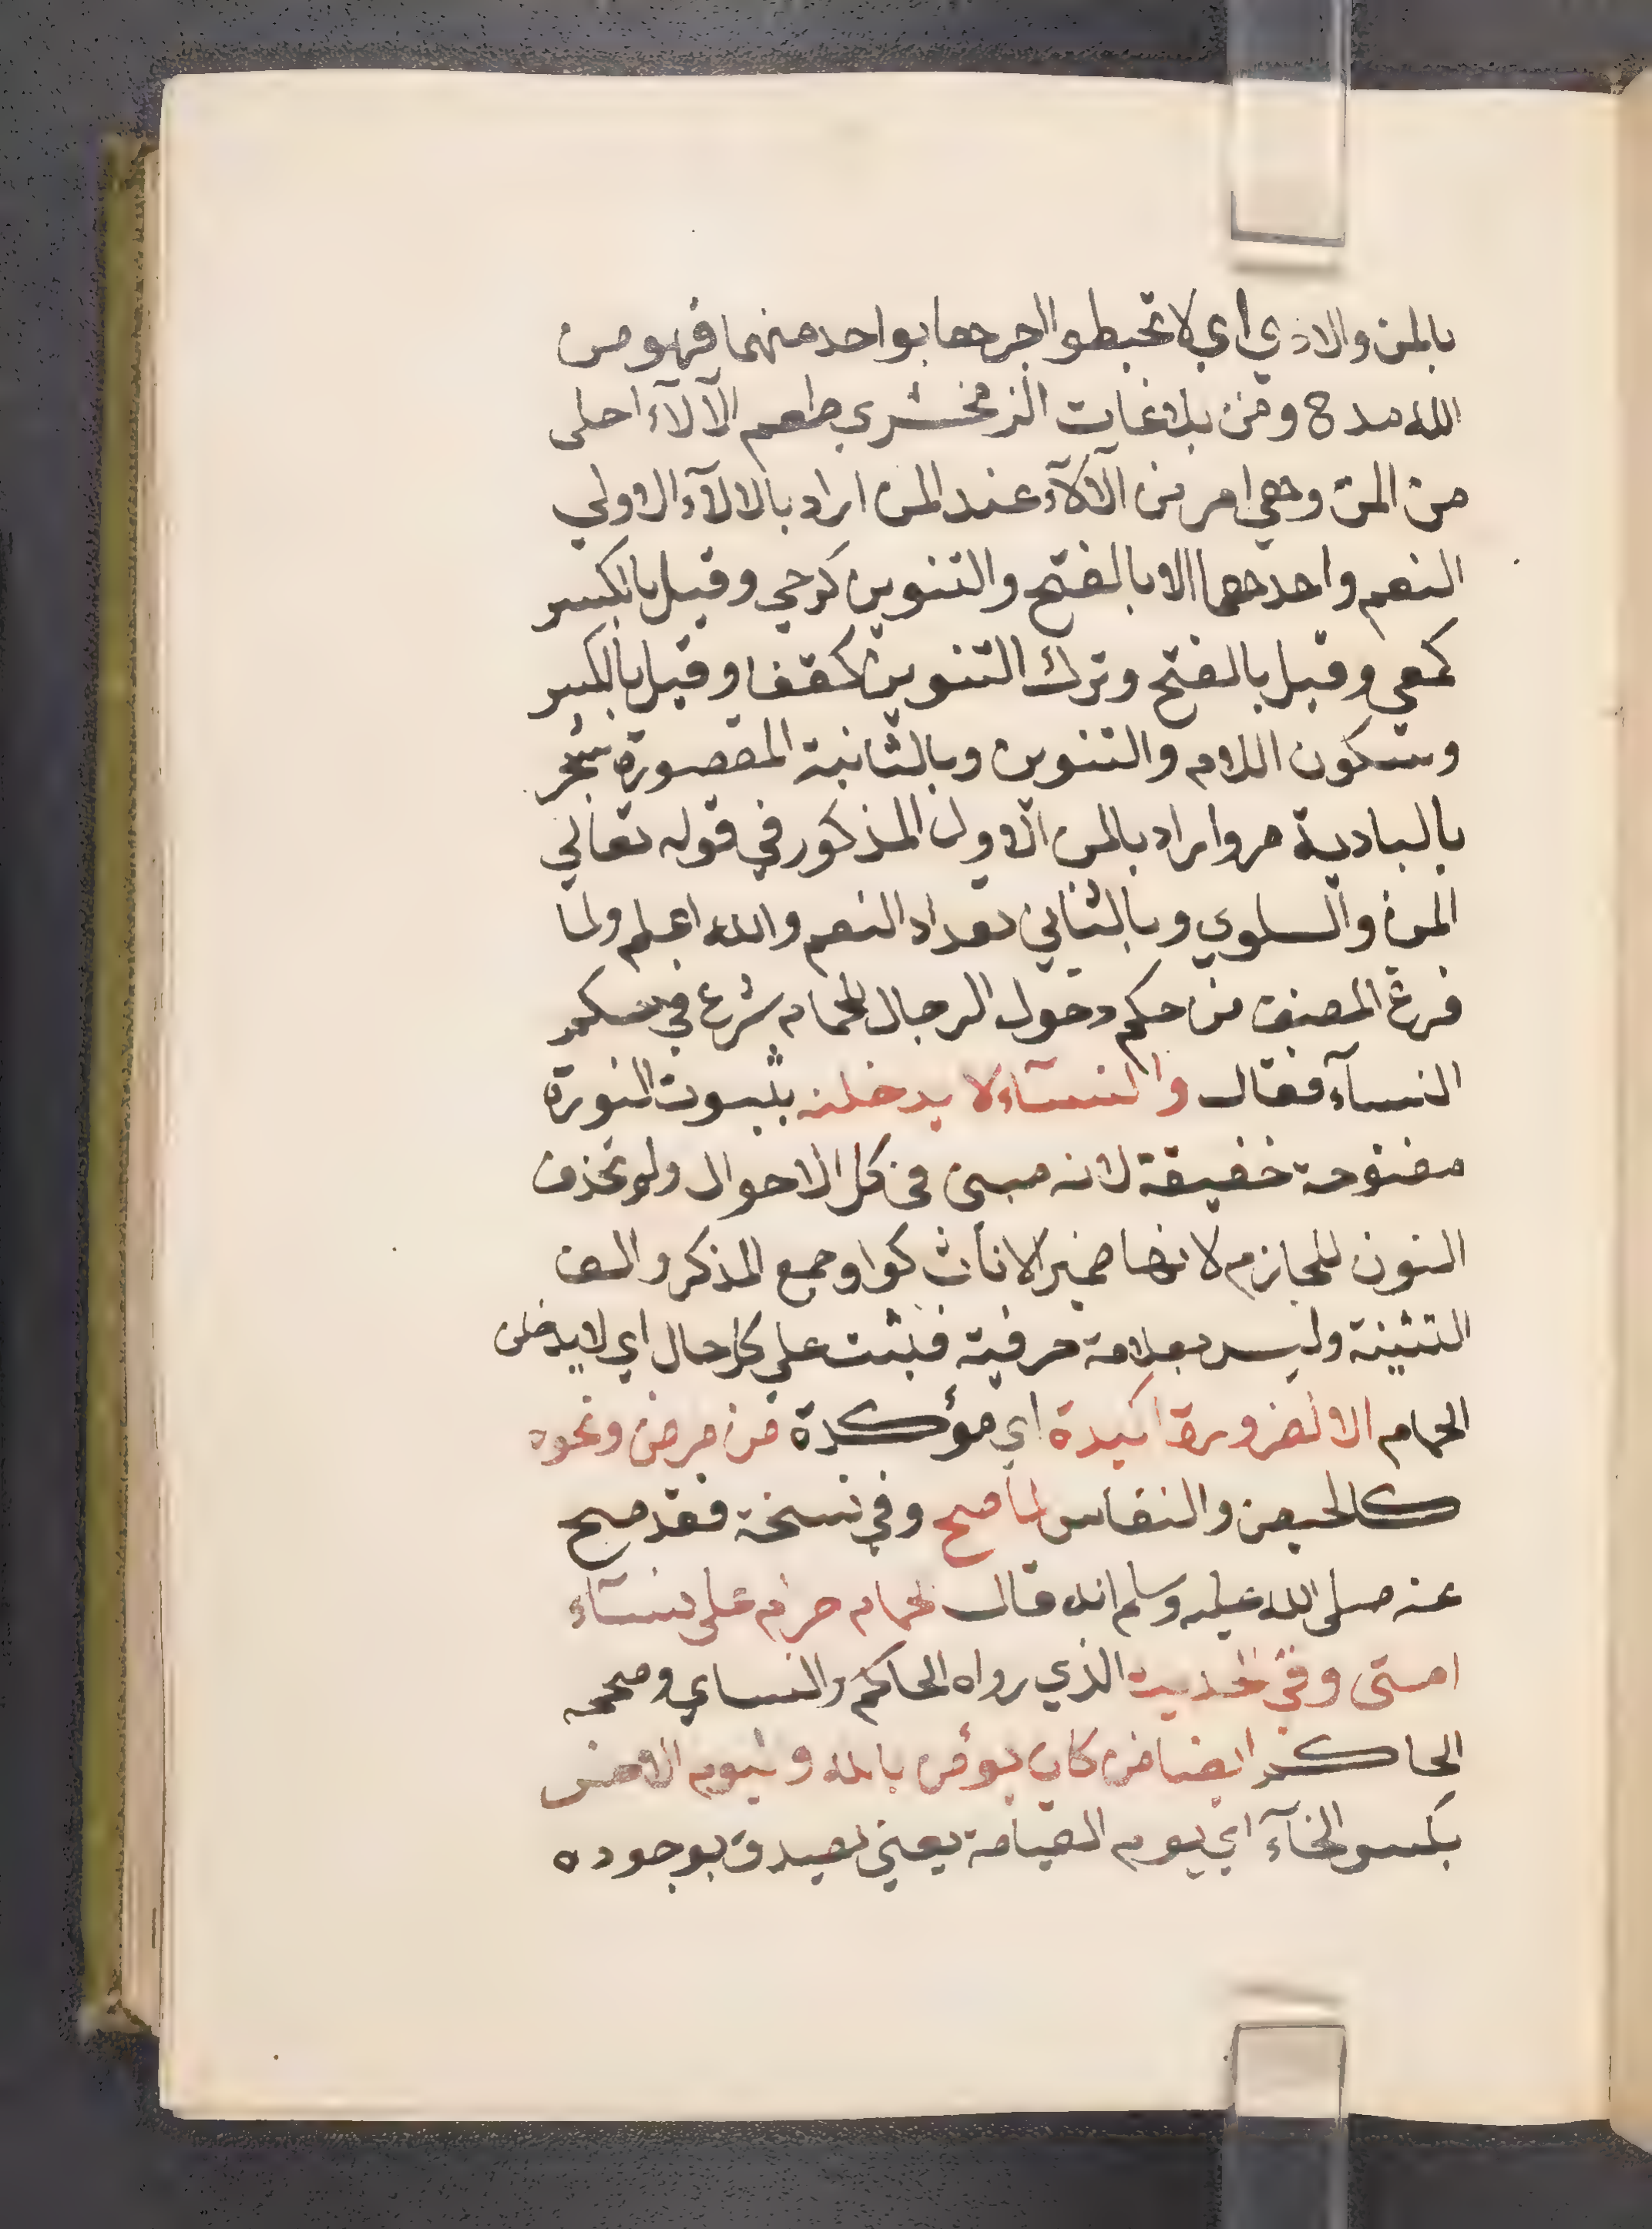 بالمن والاذي اي لا تحبطوا اجرها بواحد منهما فهو من
الله مدح ومن بلاغات الزمخشري طعم الآلآء احلى
من المن وهي امر من الآلآء عند المن اراد بالالآء الاولي
النعم واحدها الا بالفتح والتنوين كرحي وقيل بالكسر
كمعي وقيل بالفتح وترك التنوين كقفا وقيل بالكسر
وسكون اللام والتنوين وبالثانية المقصورة شجر
بالبادية مر واراد بالمن الاول المذكور في قوله تعالي
المن والسلوي وبالثاني تعداد النعم والله اعلم ولما
فرغ المصنف من حكم دخول الرجال للحمام شرع في حكم
النسآء فقال والنسآء لا يدخلنه بثبوت النورة
مفتوحة خفيفة لانه مبنى فى كل الاحوال ولم تحذف
النون للجازم لانها ضمير الاناث كواو جمع المذكر والف
التثينة وليس بعلامة حرفية فثبت علي كل حال اي لا يدخلن
الحمام الا لضرورة اكيدة اي مؤكدة من مرض ونحوه
كالحيض والنفاس لما صح وفي نسخة فقد صح
عنه صلى الله عليه وسلم انه قال الحمام حرام على نسآء
امتى وفي الحديث الذي رواه الحاكم والنساي وصححه
الحاكم ايضا من كان يؤمن بالله واليوم الاخر
بكسر الخآء اي يوم القيامة يعني يصدق بوجوده